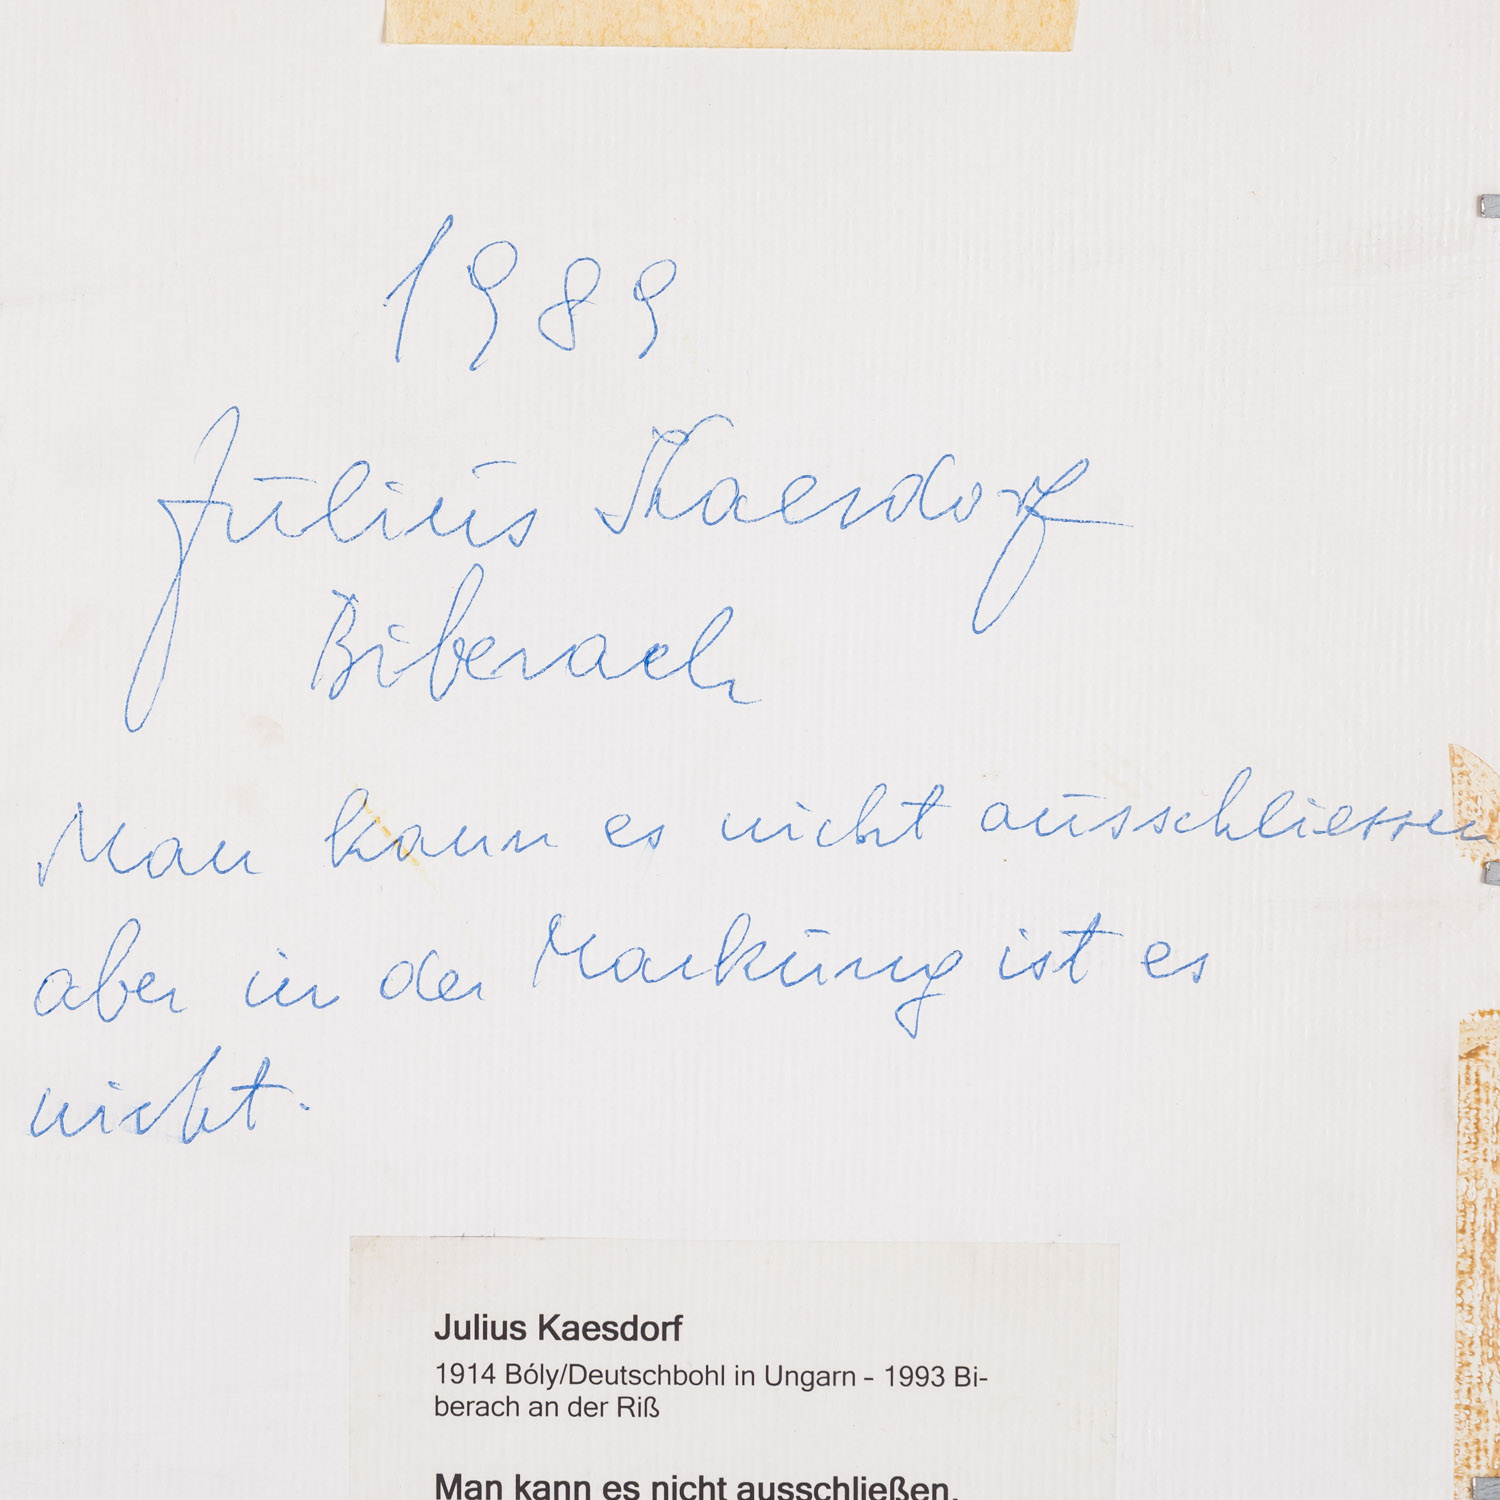 1989
Julius Kaesdorf
Biberach
Man kann es nicht ausschliessen
aber in der Markung ist es
nicht.
Julius Kaesdorf
1914 Bóly/Deutschbohl in Ungarn - 1993 Bi-
berach an der Riß
Man kann es nicht ausschließen,